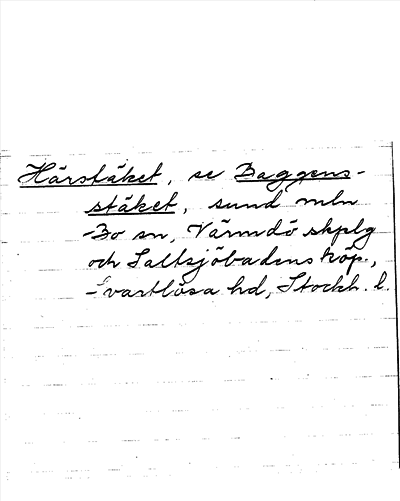 Härstäket, se Baggens-
stäket, sund mln
Bo sn, Värmdö skplg
och Saltsjöbadens köp.,
Svartlösa hd, Stockh. l.